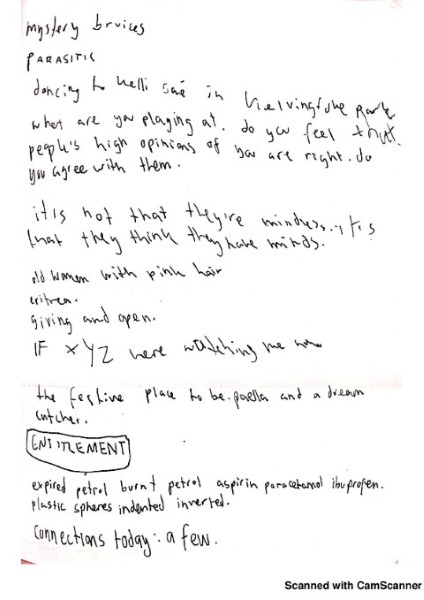 mystery bruices
PARASITIC
dancing to in Kelvingrove Park
what are you playing at. do you feel that
people's high opinions of you are right. do
you agree with them.
it is not that they're mindless. it is
that they think they have minds.
old women with pink hair
eritrea.
giving and open.
IF XYZ were watching me
the festive place to be. paella and a dream
catcher.
ENTITLEMENT
expired petrol burnt petrol aspirin paracetamol ibuprofen.
plastic spheres indented inverted.
Connections today: a few.
Scanned with CamScanner